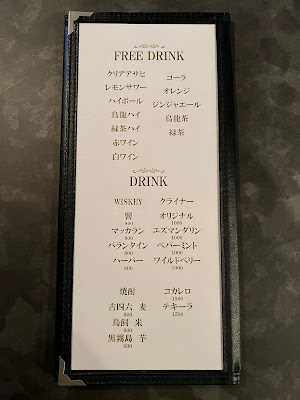 FREE DRINK
クリアアサヒ コーラ
レモンサワー オレンジ
ハイボール ジンジャエール
烏龍ハイ 烏龍茶
緑茶ハイ 緑茶
赤ワイン
白ワイン
DRINK
WISKEY クライナー
響 オリジナル
800 1000
マッカラン ユズマンダリン
800 1000
バランタイン ペパーミント
800 1000
ハーパー ワイルドベリー
800 1000
焼酎 コカレロ
1500
吉四六 麦 テキーラ
600 1500
鳥飼 米
600
黒霧島 芋
600